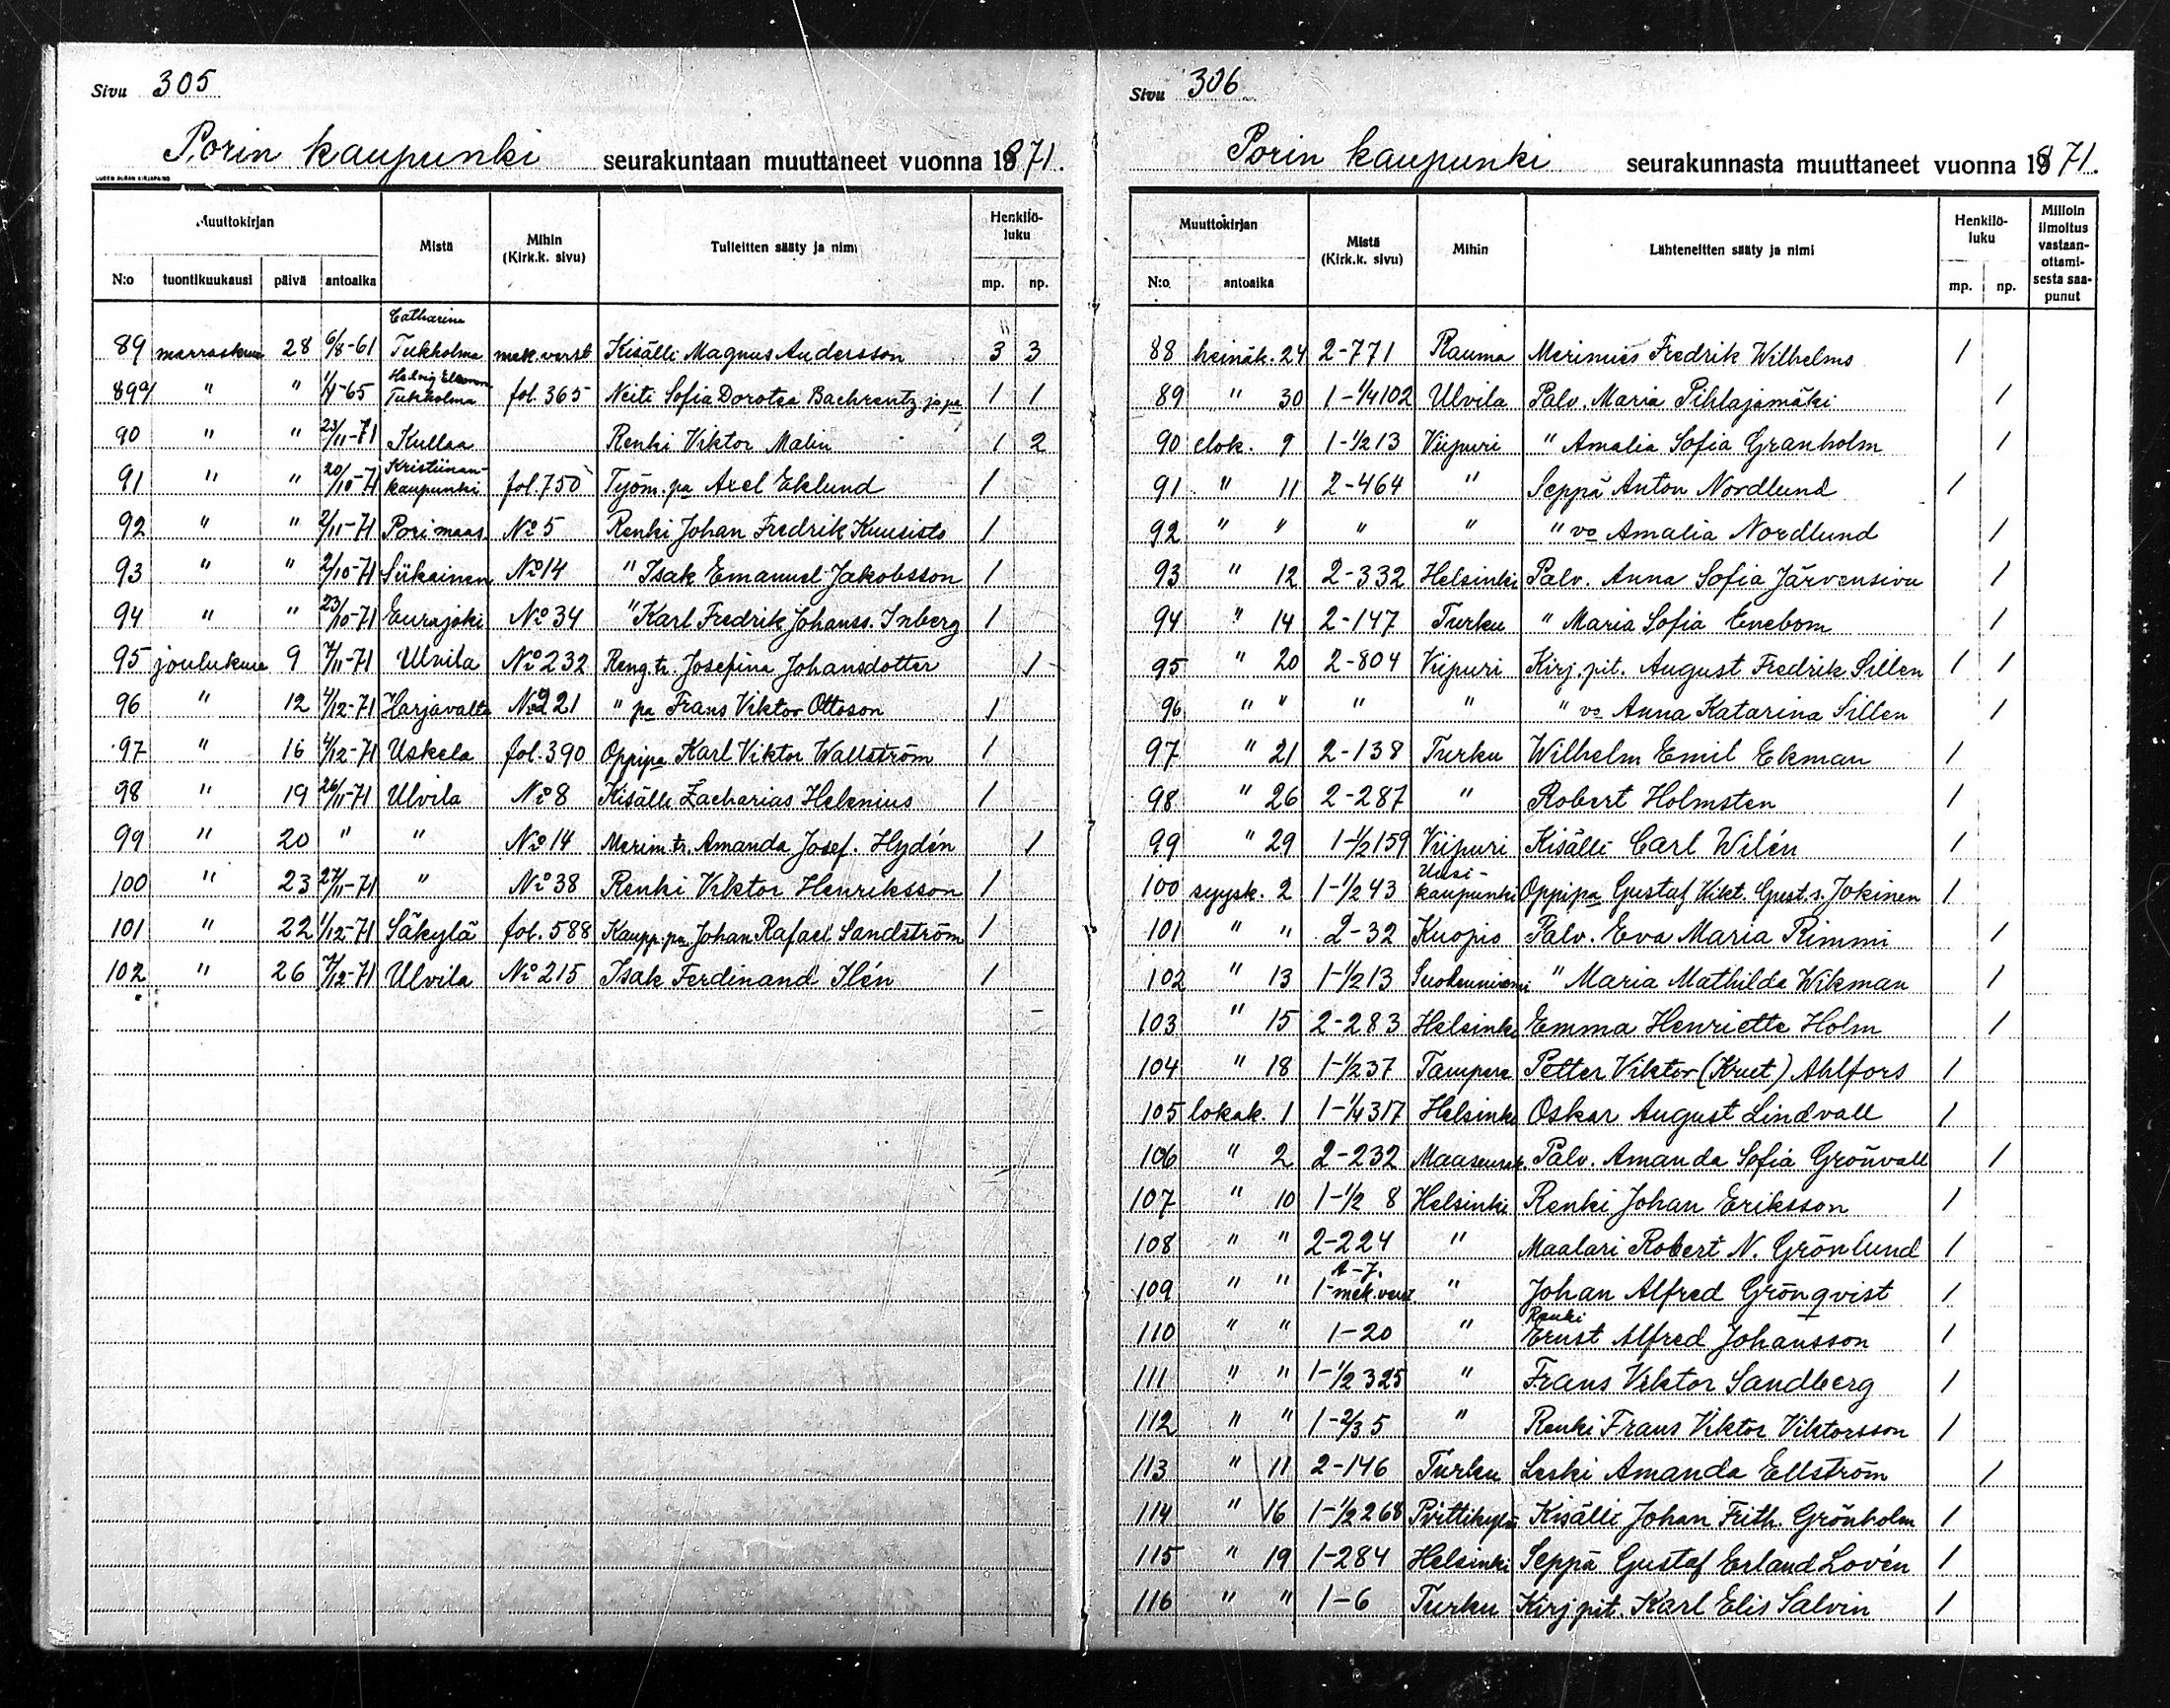 Sivu 305
Porin kaupunki seurakuntaan muuttaneet vuonna 1871.
Muuttokirjan Mistä Mihin (Kirk.k. sivu) Tulleitten sääty ja nimi Henkilö-luku
N:o tuontikuukausi päivä antoaika mp. np.
Catharina
89 marraskuu 28 6/8-61 Tukholma mek.verst Kisälli Magnus Andersson 3 3
Hedvig Eleonora
89a/ " " 1/4-65 Tukholma fol. 365 Neiti Sofia Dorotea Bachrentz ja pa 1 1
90 " " 23/11-71 Kullaa Renki Viktor Malin 1 2
Kristiinan-
91 " " 20/10-71 kaupunki fol. 750 Työm.pa Axel Eklund 1
92 " " 2/11-71 Pori maas. No 5 Renki Johan Fredrik Kuusisto 1
93 " " 2/10-71 Siikainen No 14 " Isak Emanuel Jakobsson 1
94 " " 23/10-71 Eurajoki No 34 " Karl Fredrik Johanss. Inberg 1
95 joulukuu 9 7/11-71 Ulvila No 232 Reng.tr. Josefina Johansdotter 1
96 " 12 4/12-71 Harjavalta No 221 " pa Frans Viktor Ottoson 1
97 " 16 4/12-71 Uskela fol. 390 Oppipa Karl Viktor Wallström 1
98 " 19 26/11-71 Ulvila No 8 Kisälli Zacharias Helenius 1
99 " 20 " " No 14 Merim.tr. Amanda Josef. Hydén 1
100 " 23 27/11-71 " No 38 Renki Viktor Henriksson 1
101 " 22 1/12-71 Säkylä fol. 588 Kaupp.pa Johan Rafael Sandström 1
102 " 26 7/12-71 Ulvila No 215 Isak Ferdinand Ilén 1
Sivu 306
Porin kaupunki seurakunnasta muuttaneet vuonna 1871.
Muuttokirjan Mistä (Kirk.k. sivu) Mihin Lähteneitten sääty ja nimi Henkilö-luku Milloin ilmoitus vastaan-ottami-sesta saa-punut
N:o antoaika mp. np.
88 heinäk. 24 2-771 Rauma Merimies Fredrik Wilhelms 1
89 " 30 1-1/4 102 Ulvila Palv. Maria Pihlajamäki 1
90 elok. 9 1-1/2 13 Viipuri " Amalia Sofia Granholm 1
91 " 11 2-464 " Seppä Anton Nordlund 1
92 " " " " " vo Amalia Nordlund 1
93 " 12 2-332 Helsinki Palv. Anna Sofia Järvensivu 1
94 " 14 2-147 Turku " Maria Sofia Enebom 1
95 " 20 2-804 Viipuri Kirj.pit. August Fredrik Sillen 1 1
96 " " " " " vo Anna Katarina Sillen 1
97 " 21 2-138 Turku Wilhelm Emil Ekman 1
98 " 26 2-287 " Robert Holmsten 1
99 " 29 1-1/2 159 Viipuri Kisälli Carl Wilén 1
Uusi-
100 syysk. 2 1-1/2 43 kaupunki Oppipa Gustaf Vikt. Gust.s. Jokinen 1
101 " " 2-32 Kuopio Palv. Eva Maria Rimmi 1
102 " 13 1-1/2 13 Suodenniemi " Maria Mathilda Wikman 1
103 " 15 2-283 Helsinki Emma Henriette Holm 1
104 " 18 1-1/2 37 Tampere Petter Viktor (Krut) Ahlfors 1
105 lokak. 1 1-1/4 317 Helsinki Oskar August Lindvall 1
106 " 2 2-232 Maaseurak. Palv. Amanda Sofia Grönvall 1
107 " 10 1-1/2 8 Helsinki Renki Johan Eriksson 1
108 " " 2-224 " Maalari Robert N. Grönlund 1
A-J.
109 " " 1-mek.verst " Johan Alfred Grönqvist 1
Renki
110 " " 1-20 " Ernst Alfred Johansson 1
111 " " 1-1/2 325 " Frans Viktor Sandberg 1
112 " " 1-2/3 5 " Renki Frans Viktor Viktorsson 1
113 " 11 2-146 Turku Leski Amanda Ellström 1
114 " 16 1-1/2 268 Pirttikylä Kisälli Johan Frith. Grönholm 1
115 " 19 1-284 Helsinki Seppä Gustaf Erland Lovén 1
116 " " 1-6 Turku Kirj.pit. Karl Elis Salvin 1